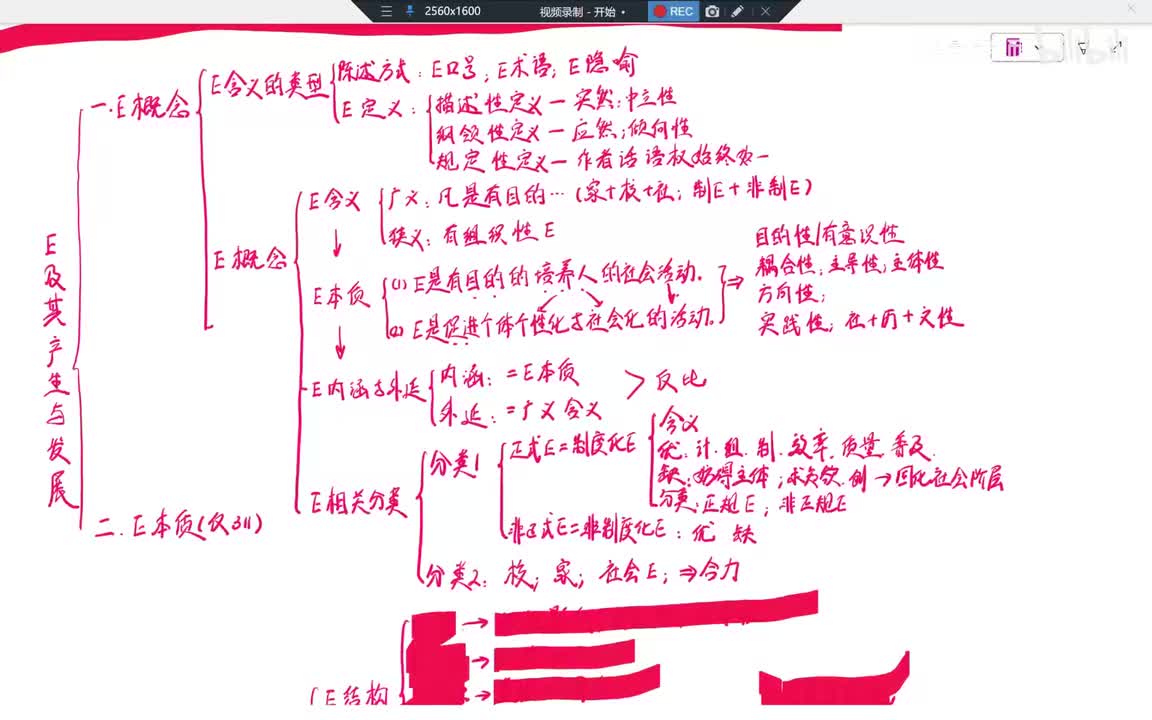 2560x1600 视频录制 - 开始 • REC
bilibili
E及其产生与发展
一.E概念
E含义的类型
陈述方式:E口号;E术语;E隐喻
E定义:
描述性定义—实然;中立性
纲领性定义—应然;倾向性
规定性定义—作者话语权始终如一
E概念
E含义
广义:凡是有目的…(家+校+社;制E+非制E)
狭义:有组织性E
E本质
(1)E是有目的的培养人的社会活动.
(2)E是促进个体个性化与社会化的活动.
⇒
目的性/有意识性
耦合性;主导性;主体性
方向性;
实践性;社+历+文性
E内涵与外延
内涵:=E本质
外延:=广义含义
> 反比
E相关分类
分类1
正式E=制度化E
含义
优:计.组.制.效率.质量.普及.
缺:妨碍主体;求 刻→固化社会阶层
分类:正规E;非正规E
非正式E=非制度化E:优 缺
分类2:校;家;社会E;⇒合力
二.E本质(仅311)
E结构